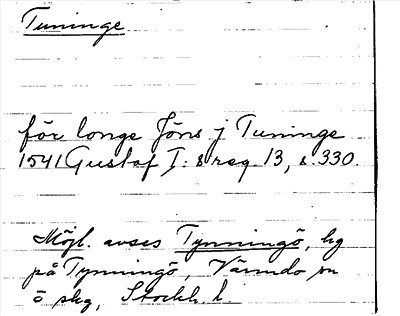 Tuninge
för longe Jöns j Tuninge
1541 Gustaf I:s reg. 13, s. 330.
Möjl. avses Tynningö, hg
på Tynningö, Värmdö sn
o skg, Stockh. l.